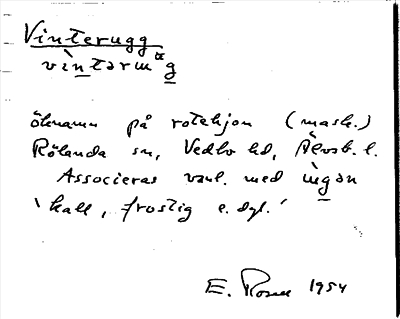 Vinterugg
vìntərmᵒg
öknamn på rotehjon (mask.)
Rölanda sn, Vedbo hd, Älvsb. l.
Associeras vanl. med ingən
'kall, frostig e. dyl.'
E. 1954